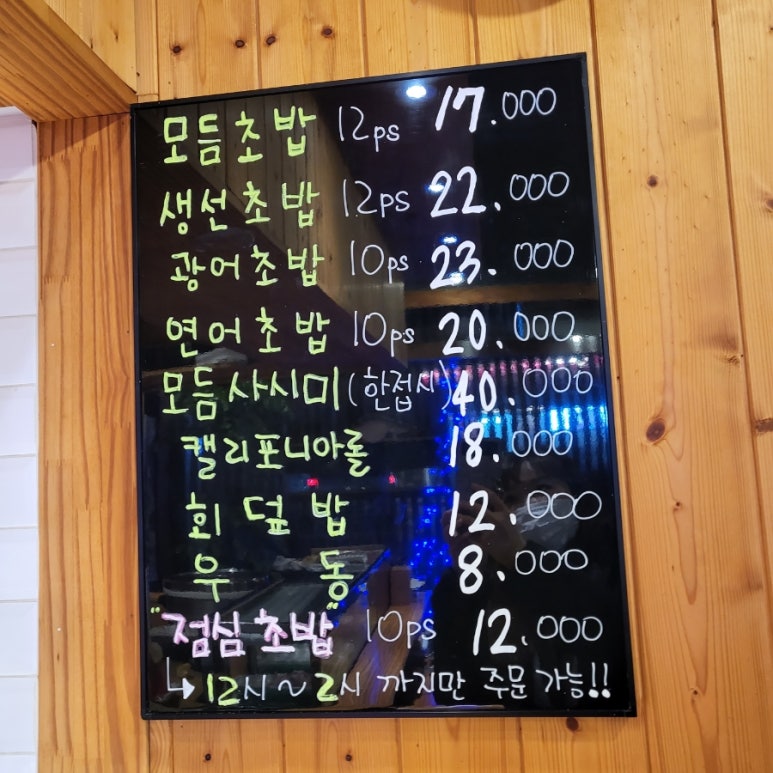 모듬초밥 12ps 17.000
생선초밥 12ps 22.000
광어초밥 10ps 23.000
연어초밥 10ps 20.000
모듬사시미(한접시) 40.000
캘리포니아롤 18.000
회덮밥 12.000
우동 8.000
"점심초밥" 10ps 12.000
↳12시~2시 까지만 주문가능!!